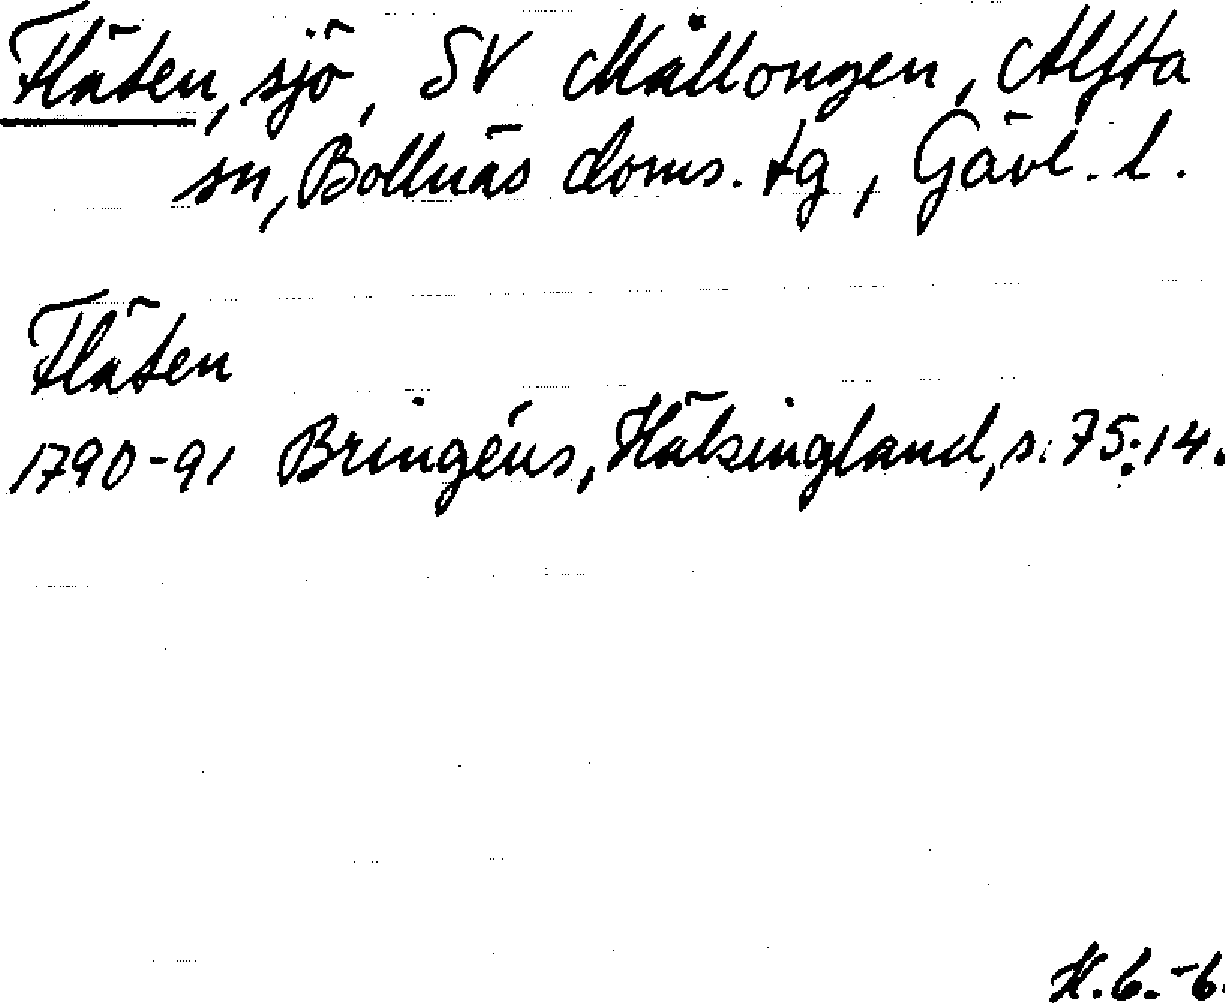 Fläten, sjö, SV Mållongen, Alfta
sn, Bollnäs doms. tg, Gävl. l.
Fläten
1790-91 Bringéus, Hälsingland, s. 75:14.
H.G.-6.